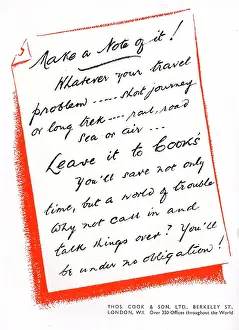 Make a Note of it!
Whatever your travel
problem ..... short journey
or long trek .... rail, road
sea or air ...
Leave it to Cook's
You'll save not only
time, but a world of trouble
Why not call in and
talk things over? You'll
be under no obligation!
THOS. COOK & SON, LTD., BERKELEY ST.,
LONDON, W.1. Over 350 Offices throughout the World